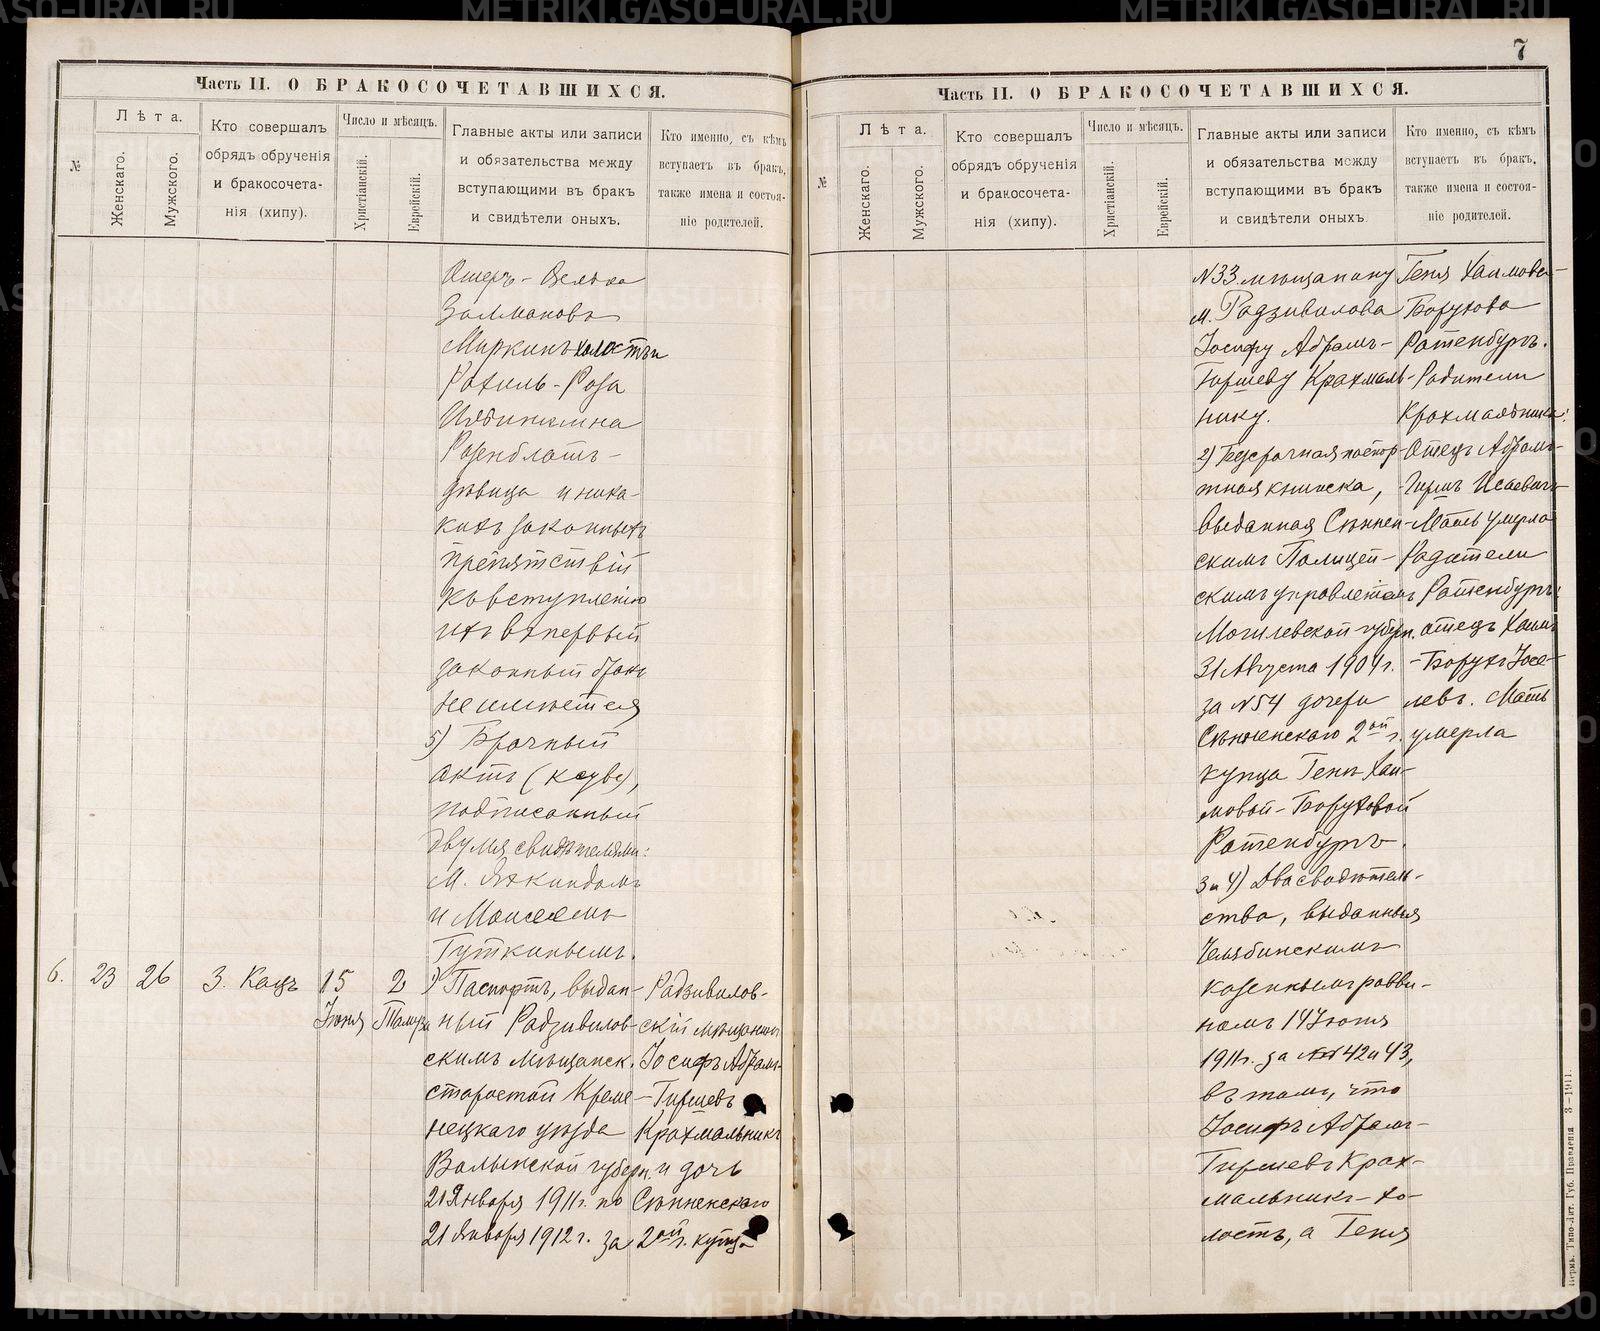 METRIKI.GASO-URAL.RU
7
Часть II. О БРАКОСОЧЕТАВШИХСЯ.
№
Лѣта.
Женскаго.
Мужского.
Кто совершалъ
обрядъ обрученія
и бракосочета-
нія (хипу).
Число и мѣсяцъ.
Христіанскій.
Еврейскій.
Главные акты или записи
и обязательства между
вступающими въ бракъ
и свидѣтели оныхъ.
Кто именно, съ кѣмъ
вступаетъ въ бракъ,
также имена и состоя-
ніе родителей.
Ошеръ-Зелика
Залмановъ
Миркинъ холостъ и
Рахиль-Роза
Розенблатъ-
дѣвица и ника-
кихъ законныхъ
препятствій
къ вступленію
ихъ въ первый
законный бракъ
не имѣется
5) Брачный
актъ (ксуве),
подписанный
двумя свидѣтелями:
М. Яхкиндомъ
и Моисеемъ
Гуткинымъ.
6.
23
26
З. Кацъ
15
Іюня
2
Тамуза
1) Паспортъ, выдан-
ный Радзивилов-
скимъ мѣщанск.
старостой Креме-
нецкаго уѣзда
Волынской губерн.
21 Января 1911г. по
21 Января 1912г. за
Радзивилов-
скій мѣщанинъ
Іосифъ Абрамъ-
Гиршевъ
Крахмальникъ
и дочь
Сѣнненскаго
2ой г. купца
Часть II. О БРАКОСОЧЕТАВШИХСЯ.
№
Лѣта.
Женскаго.
Мужского.
Кто совершалъ
обрядъ обрученія
и бракосочета-
нія (хипу).
Число и мѣсяцъ.
Христіанскій.
Еврейскій.
Главные акты или записи
и обязательства между
вступающими въ бракъ
и свидѣтели оныхъ
Кто именно, съ кѣмъ
вступаетъ въ бракъ,
также имена и состоя-
ніе родителей.
№33 мѣщанину
м. Радзивилова
Іосифу Абрамъ-
Гиршеву Крахмаль-
нику.
2) Безсрочная паспор-
тная книжка,
выданная Сѣннен-
скимъ Полицей-
скимъ управленіемъ
Могилевской губерн.
31 Августа 1904г.
за №54 дочери
Сѣнненскаго 2ой г.
купца Генѣ Хаи-
мовой-Боруховой
Ратенбургъ.
3 и 4) Два свидѣтель-
ства, выданныя
Челябинскимъ
казеннымъ равви-
номъ 14 Іюня
1911г. за №№ 42 и 43,
въ томъ, что
Іосифъ Абрамъ-
Гиршевъ Крах-
мальникъ-хо-
лостъ, а Геня
Геня Хаимова-
Борухова
Ратенбургъ.
Родители
Крахмальника:
Отецъ Абрамъ-
Гиршъ Исаевичъ
Мать умерла
Родители
Ратенбургъ:
отецъ Хаимъ
-Борухъ Іосе-
левъ. Мать
умерла
Пермь. Типо-Лит. Губ. Правленія 3-1911.